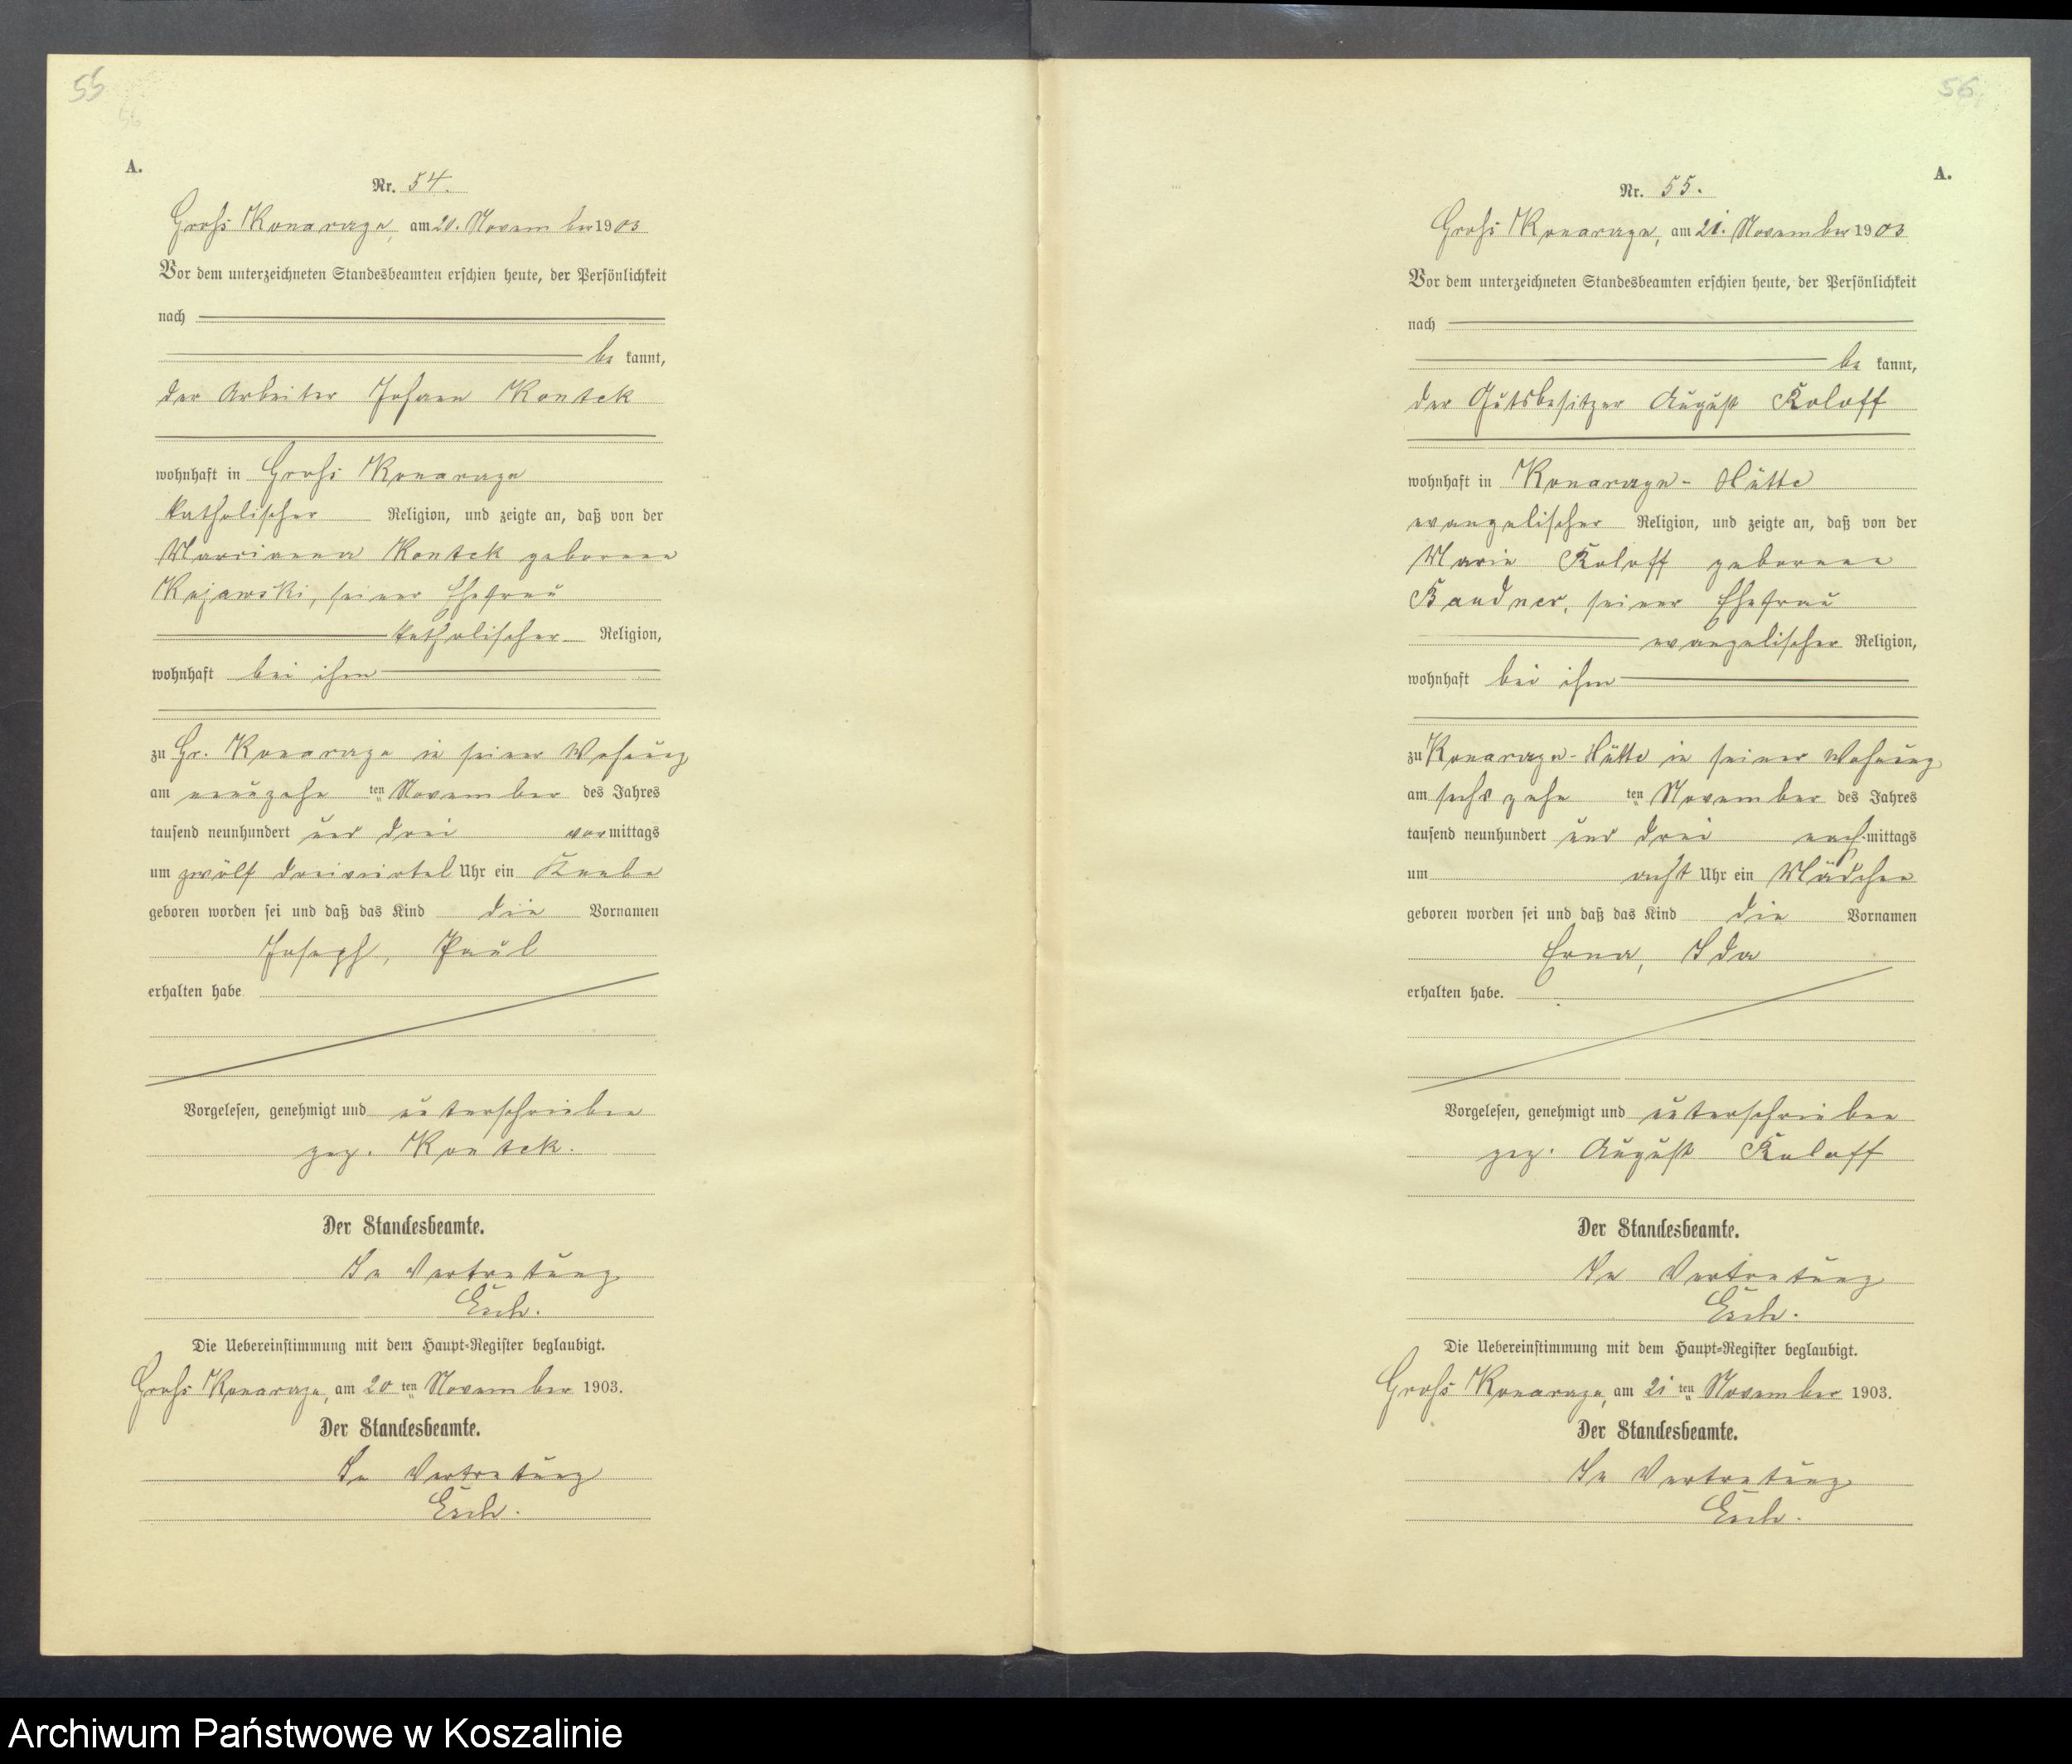 55
A.
Nr. 54.
Groß Konarzyn, am 20. November 1903
Vor dem unterzeichneten Standesbeamten erschien heute, der Persönlichkeit
nach
be kannt,
der Arbeiter Johann Kontek
wohnhaft in Groß Konarzyn
katholischer Religion, und zeigte an, daß von der
Marianna Kontek geborenen
Kujawski, seiner Ehefrau
katholischer Religion,
wohnhaft bei ihm
zu Gr. Konarzyn in seiner Wohnung
am neunzehn ten November des Jahres
tausend neunhundert und drei vormittags
um zwölf dreiviertel Uhr ein Knabe
geboren worden sei und daß das Kind die Vornamen
Joseph, Paul
erhalten habe
Vorgelesen, genehmigt und unterschrieben
gez. Kontek.
Der Standesbeamte.
In Vertretung
Die Uebereinstimmung mit dem Haupt-Register beglaubigt.
Groß Konarzyn, am 20 ten November 1903.
Der Standesbeamte.
In Vertretung
56
A.
Nr. 55.
Groß Konarzyn, am 21. November 1903
Vor dem unterzeichneten Standesbeamten erschien heute, der Persönlichkeit
nach
be kannt,
der Gutsbesitzer August Koloff
wohnhaft in Konarzyn-Hütte
evangelischer Religion, und zeigte an, daß von der
Marie Koloff geborenen
Bandner, seiner Ehefrau
evangelischer Religion,
wohnhaft bei ihm
zu Konarzyn-Hütte in seiner Wohnung
am sechszehn ten November des Jahres
tausend neunhundert und drei nachmittags
um acht Uhr ein Mädchen
geboren worden sei und daß das Kind die Vornamen
Erna, Ida
erhalten habe.
Vorgelesen, genehmigt und unterschrieben
gez. August Koloff
Der Standesbeamte.
In Vertretung
Die Uebereinstimmung mit dem Haupt-Register beglaubigt.
Groß Konarzyn, am 21 ten November 1903.
Der Standesbeamte.
In Vertretung
Archiwum Państwowe w Koszalinie